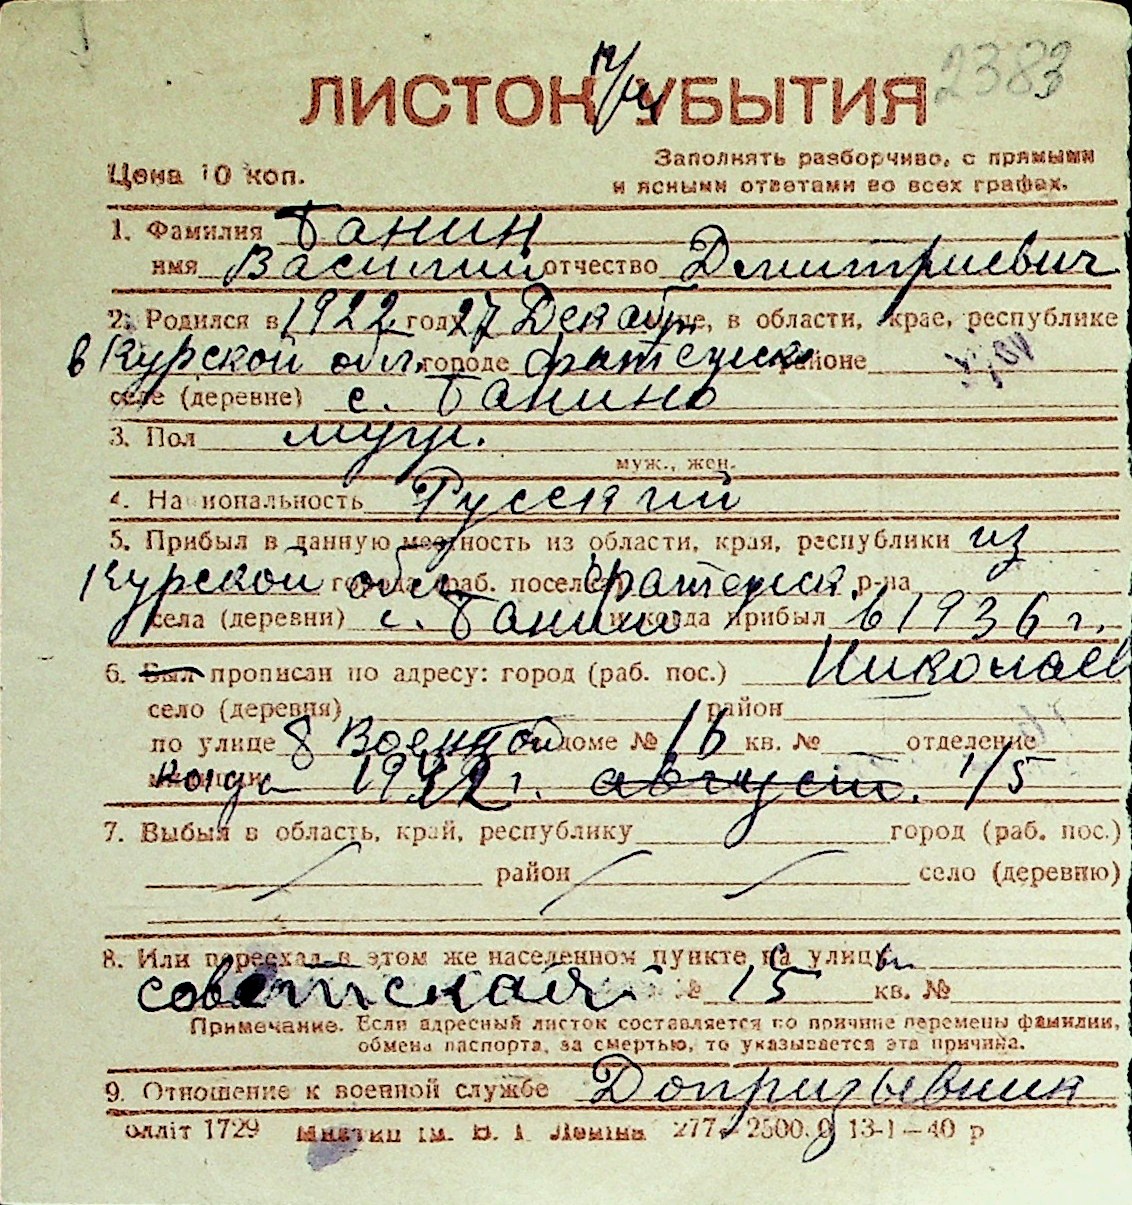 2383
ЛИСТОК УБЫТИЯ
Цена 10 коп.
Заполнять разборчиво, с прямыми
и ясными ответами во всех графах.
1. Фамилия Банин
имя Василий отчество Дмитриевич
2. Родился в 1922 году 27 Декабр. в области, крае, республике
в Курской обл. городе Фатежск районе
селе (деревне) с. Банино
3. Пол муж.
муж., жен.
4. Национальность Русский
5. Прибыл в данную местность из области, края, республики из
Курской обл города, раб. поселка Фатежск. р-на
села (деревни) с. Банино и когда прибыл в 1936 г.
6. Был прописан по адресу: город (раб. пос.) Николаев
село (деревня) район
по улице 8 Военной доме № 16 кв. № отделение
милиции когда 1942 г. август. 1/5
7. Выбыл в область, край, республику город (раб. пос.)
район село (деревню)
8. Или переехал в этом же населенном пункте на улицу
советская № 15 кв. №
Примечание. Если адресный листок составляется по причине перемены фамилии,
обмена паспорта, за смертью, то указывается эта причина.
9. Отношение к военной службе Допризывник
Облліт 1729 Миктип ім. В. І. Леніна 277 – 2500. 13-I – 40 р